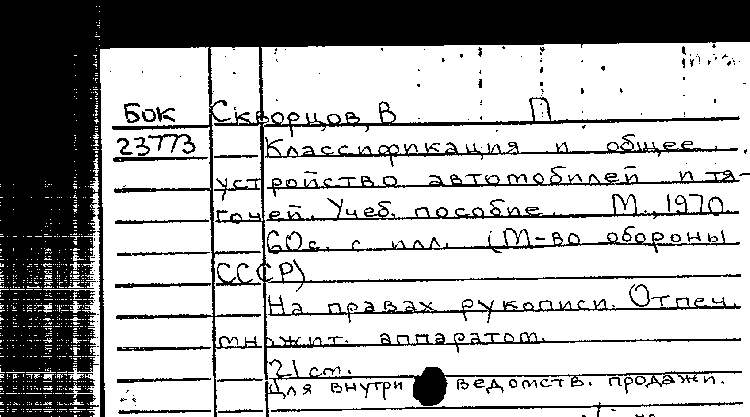 Бок Скворцов, В П
23773 Классификация и общее
устройство автомобилей и тя-
гочей. Учеб. пособие. М., 1970.
60с. с илл. (М-во обороны
СССР)
На правах рукописи. Отпеч.
множит. аппаратом.
21 см.
Для внутриведомств. продажи.